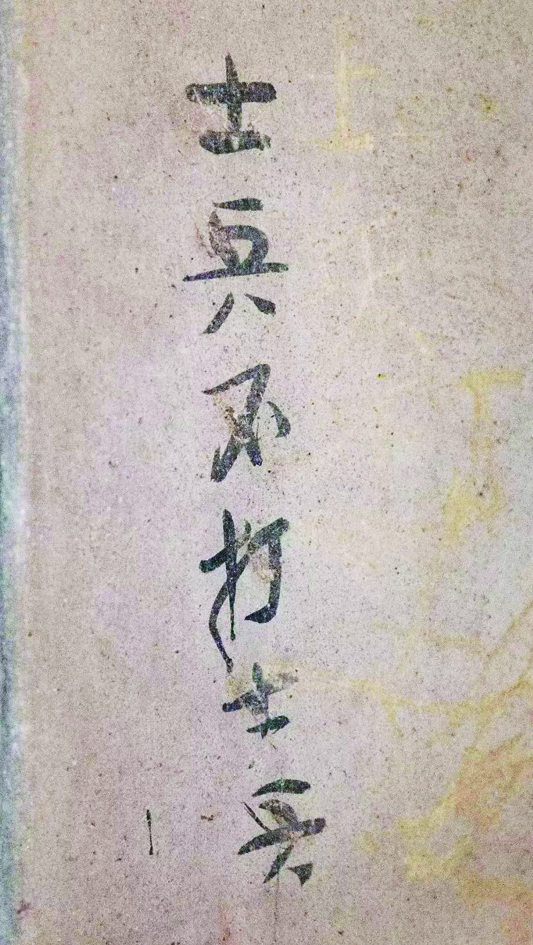 士兵不打士兵